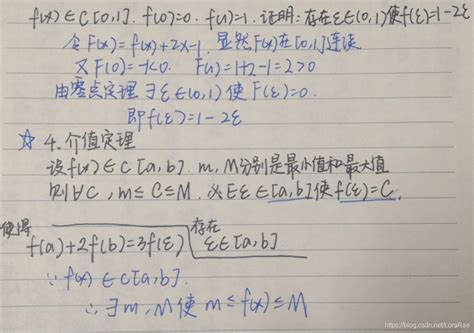 f(x)∈C[0,1]. f(0)=0. f(1)=1. 证明:存在ξ∈(0,1)使f(ξ)=1-2ξ
令F(x)=f(x)+2x-1. 显然F(x)在[0,1]连续
又F(0)=-1<0. F(1)=1+2-1=2>0
由零点定理∃ξ∈(0,1)使F(ξ)=0.
即f(ξ)=1-2ξ
☆ 4. 介值定理
设f(x)∈C[a,b]. m, M分别是最小值和最大值
则∀C, m≤C≤M. 必∃ξ∈[a,b]使f(ξ)=C.
使得 f(a)+2f(b)=3f(ξ) 存在 ξ∈[a,b]
∵f(x)∈C[a,b].
∴∃m, M使m≤f(x)≤M
https://blog.csdn.net/LoraRae